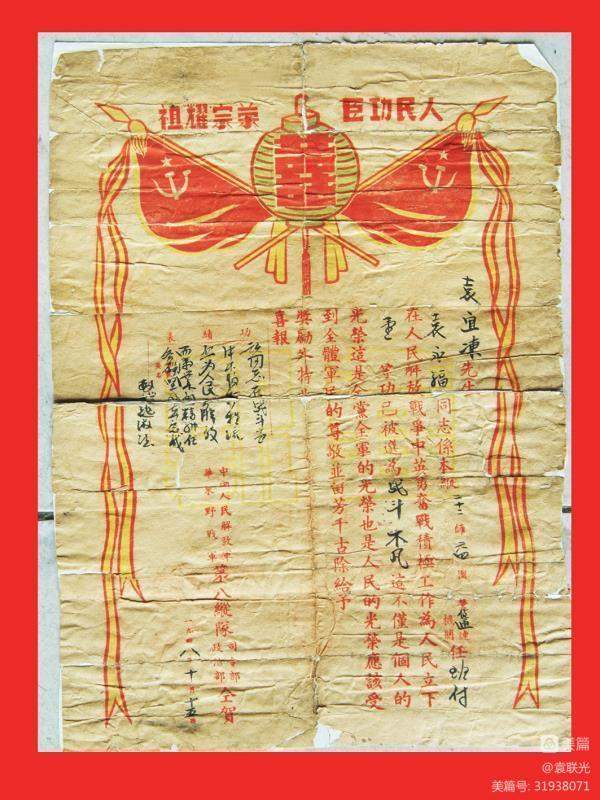 人民功臣
荣宗耀祖
囍
袁宜凍先生
袁平福同志係本縱二十二師 团 營 連任班付
在人民解放戰爭中英勇奮戰積極工作為人民立下
壹等功已被選為战斗不凡這不僅是個人的
光榮這是全黨全軍的光榮也是人民的光榮應該受
到全體軍民的尊敬並留芳千古除給予
獎勵外特此
喜報
功績表
該同志在战斗当
为人民解放
中國人民解放軍
華東野戰軍
第八縱隊
司令部
政治部
仝賀
一九四八年十月十五日
美篇
@袁联光
美篇号: 31938071